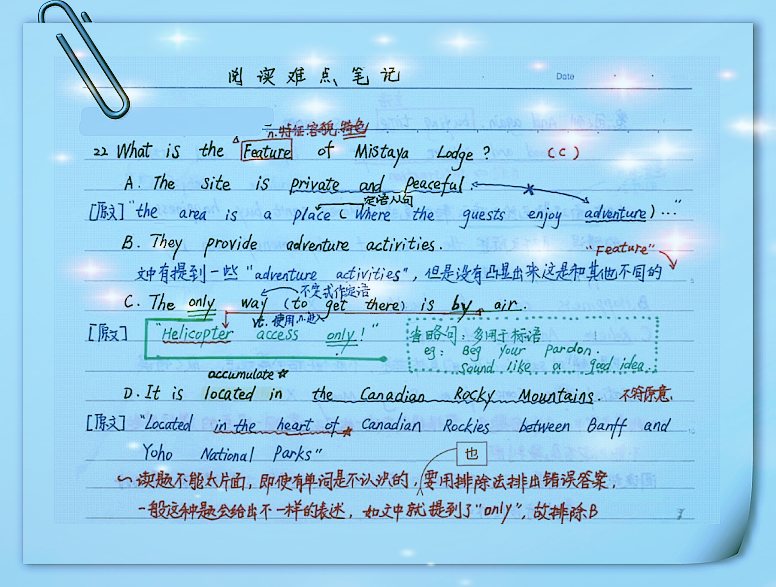 阅读难点笔记
Date
n.特征.容貌.特色
22 What is the Feature of Mistaya Lodge? (C)
A. The site is private and peaceful.
定语从句
[原文] "the area is a place (where the guests enjoy adventure)..."
B. They provide adventure activities.
"Feature"
文中有提到一些"adventure activities", 但是没有凸显出来这是和其他不同的
不定式作定语
C. The only way (to get there) is by air.
vt. 使用.n.进入
[原文] "Helicopter access only!"
省略句:多用于标语
eg: Beg your pardon.
sound like a good idea.
accumulate☆
D. It is located in the Canadian Rocky Mountains. 不符原意.
[原文] "Located in the heart of Canadian Rockies between Banff and
Yoho National Parks"
也
~读题不能太片面,即使有单词是不认识的,要用排除法排出错误答案.
一般这种题会给出不一样的表述,如文中就提到了"only",故排除B